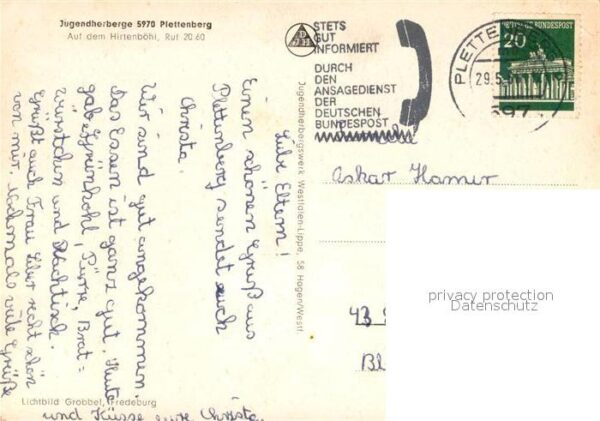 Jugendherberge 5970 Plettenberg
Auf dem Hirtenböhl, Ruf 20 60
Liebe Eltern!
Einen schönen Gruß aus
Plettenberg sendet euch
Christa.
Wir sind gut angekommen.
Das Essen ist ganz gut. Heute
gab es Grünkohl, Pürre, Brat=
würstchen und Nachtisch.
Grüßt auch Frau Liber recht schön
von mir. Nochmals viele Grüße
und Küsse eure Christa.
Lichtbild Grobbel, Fredeburg
Jugendherbergswerk Westfalen-Lippe, 58 Hagen/Westf.
STETS
GUT
INFORMIERT
DURCH
DEN
ANSAGEDIENST
DER
DEUTSCHEN
BUNDESPOST
PLETTE
29.5.
597
DEUTSCHE BUNDESPOST
20
Oskar Hamer
43
Bl
privacy protection
Datenschutz